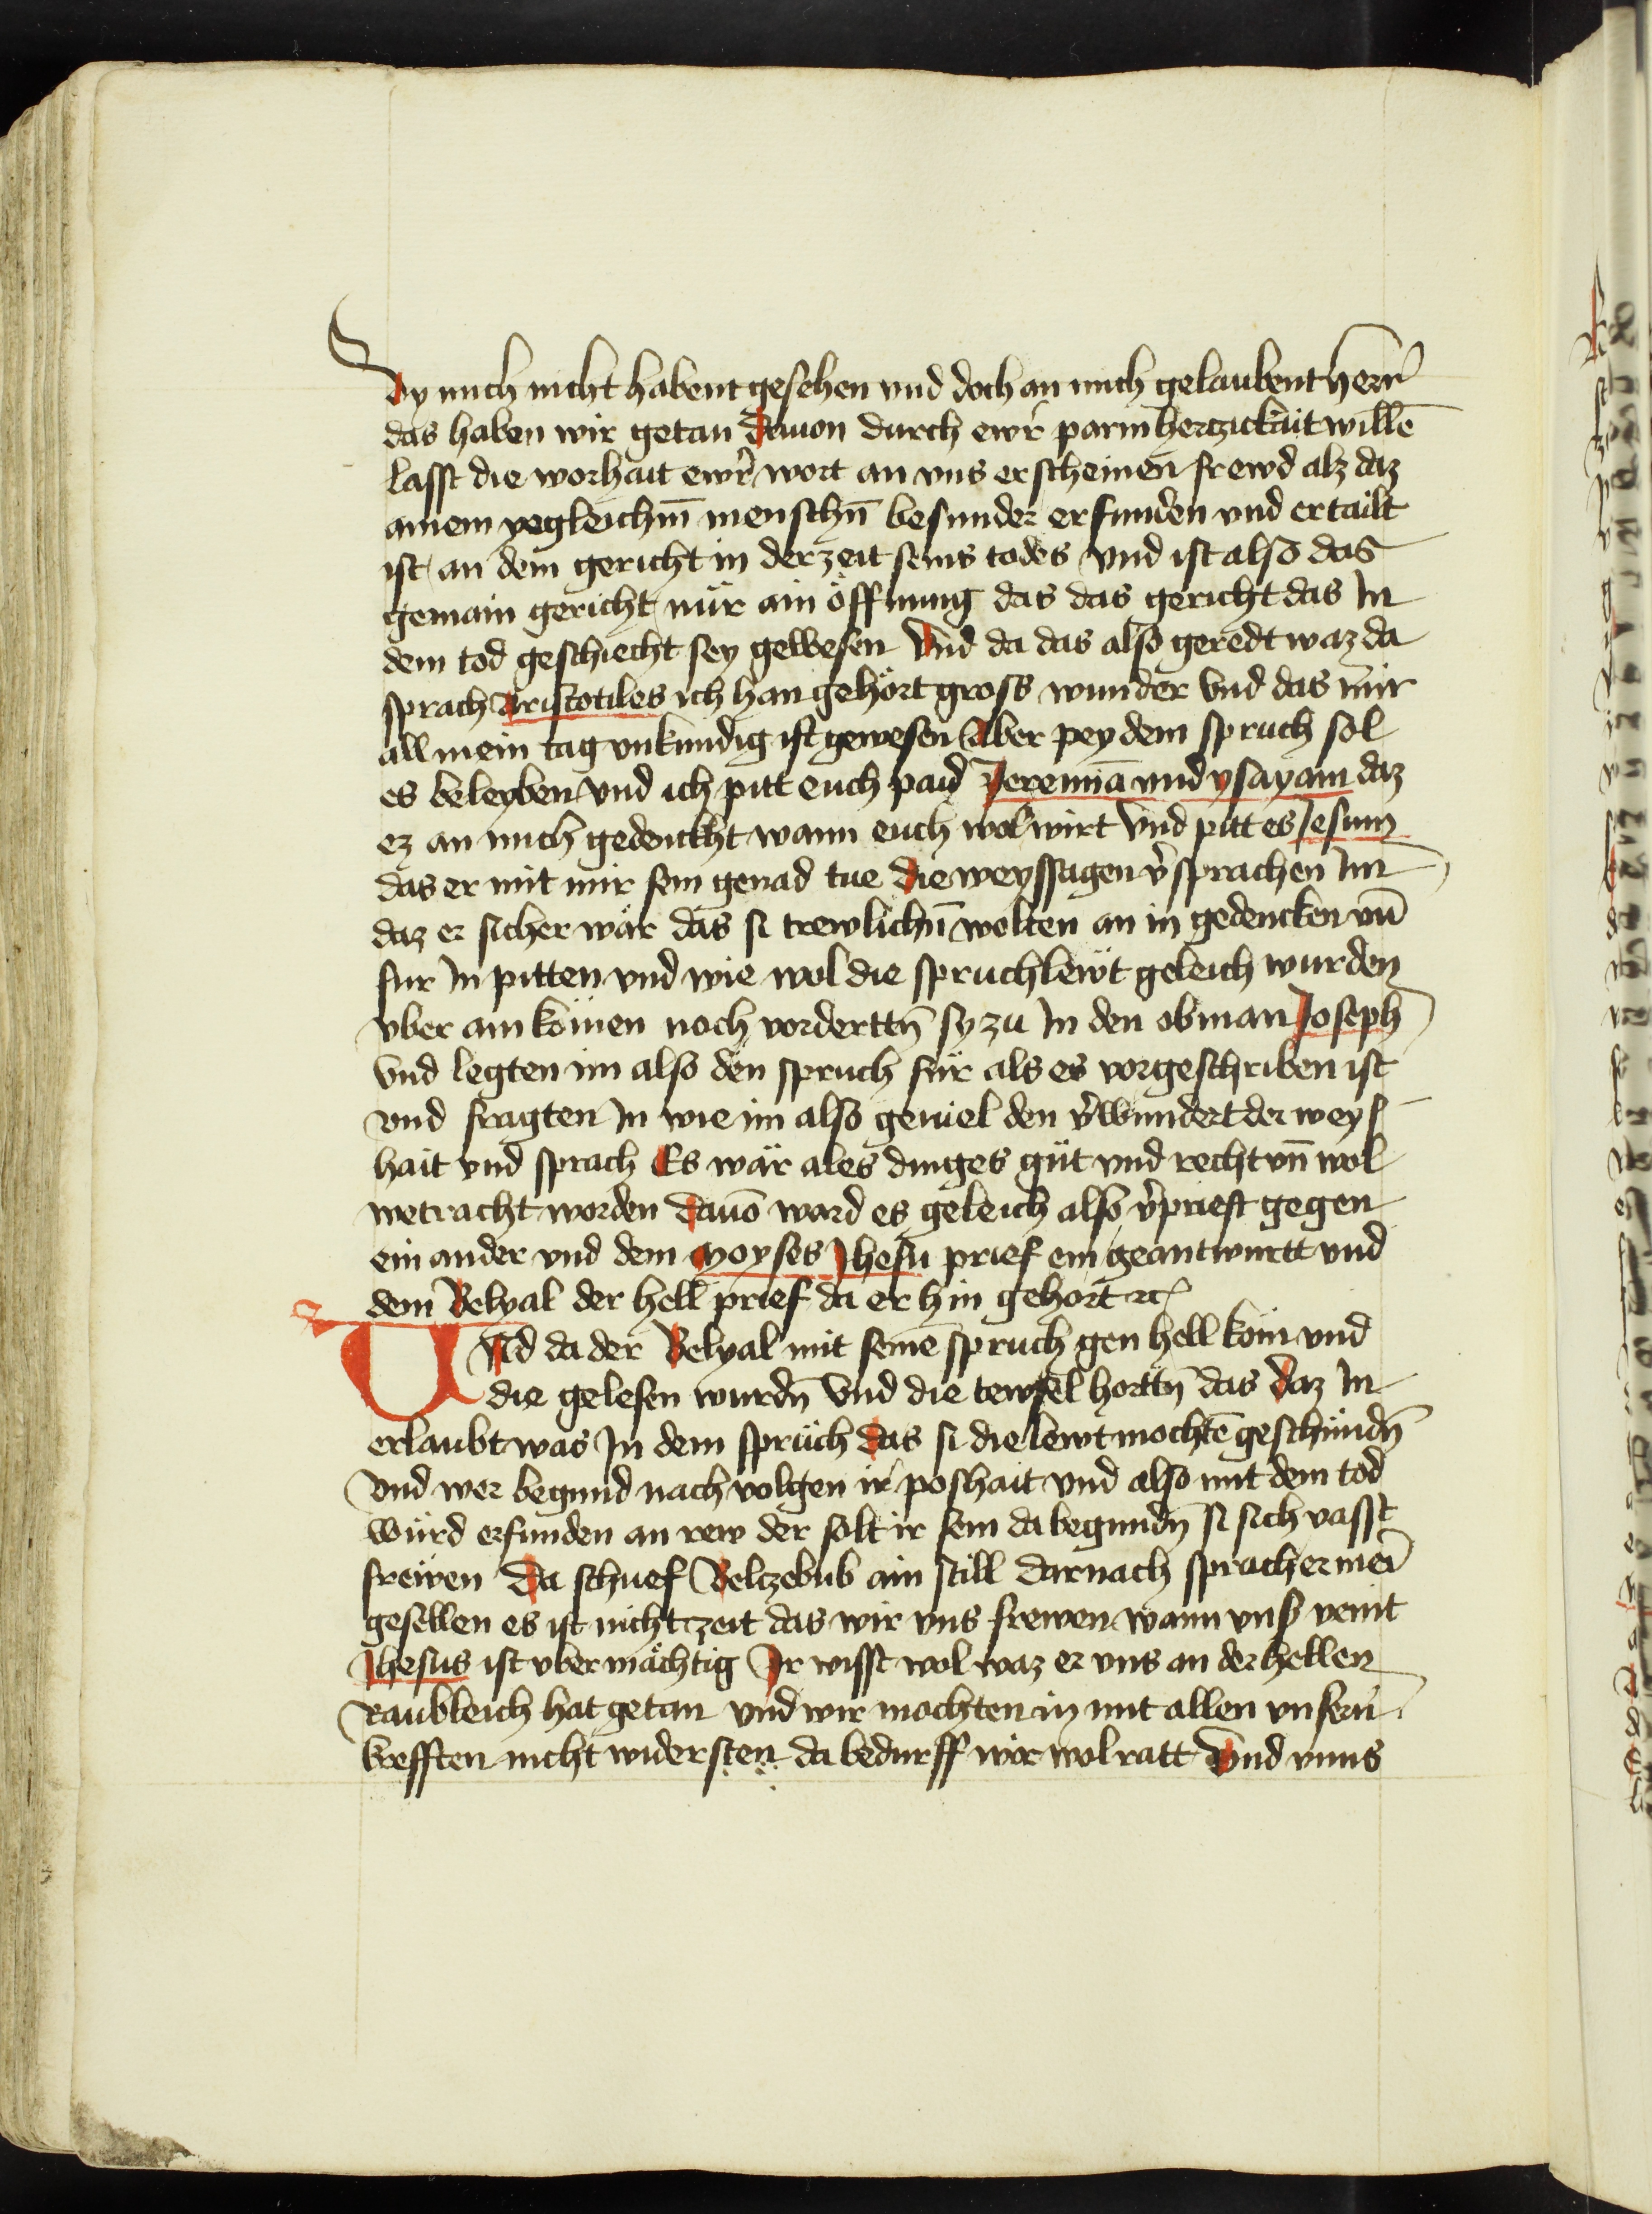 Dy mich nicht habent gesehen vnd doch an mich gelaubent herr̄
das haben wir getan Dauon durch ewr̄ parmhertzickait willē
lasst die worhait ewr̄ wort an vns erscheinen frewd alz daz
ainem yegleichm̄ menschn̄ besunder erfunden vnd ertailt
ist an dem gericht in der zeit seins todes vnd ist also das
gemain gericht nür ain öffnung das das gericht das In
dem tod geschiecht sey gewesen Vnd da das also geredt waz da
sprach Aristotiles ich han gehört gross wunder vnd das mir
all mein tag vnkundig ist gewesen Aber pey dem spruch sol
es beleyben vnd ich pitt euch paid Jeremiā vnd ysayam daz
ez an mich gedenckht wann euch wol wirt vnd pitt es Jesum
das er mit mir sein genad tue Die weyssagen v̄sprachen Im
daz er sicher wär das si trewlichn̄ wolten an in gedencken vn̄
fur In pitten vnd wie wol die spruchlewt geleich wurden
vber ain kömen noch vordertn̄ sy zu In den obman Joseph
vnd legten im also den spruch für als es vorgeschriben ist
vnd fragten In wie im also geuiel den v̄wundert der weys
hait vnd sprach Es wär ales dinges güt vnd recht vn̄ wol
wetracht worden Dauō ward es geleich also v̄prieft gegen
ein ander vnd dem Moyses Jhesu prief ein geantwurtt vnd
dem Belyal der hell prief da er hin gehort ꝛc
Vnd da der Belyal mit seinē spruch gen hell kom vnd
die gelesen wurdn̄ Vnd die tewfel hortn̄ das daz In
erlaubt was In dem sprüch das si die lewt mochtē geschündn̄
vnd wer begund nach volgen ir poshait vnd also mit dem tod
würd erfunden an rew der solt ir sein da begundn̄ si sich vasst
frewen Da schuef Belczebub ain still darnach sprach er mei
gesellen es ist nicht zeit das wir vns frewen wann vnser veint
Jhesus ist vbermächtig Ir wisst wol waz er vns an der hellen
Raubleich hat getan vnd wir mochten in mit allen vnsern̄
krefften nicht widersten da bedurff wir wol ratt Vnd vnns